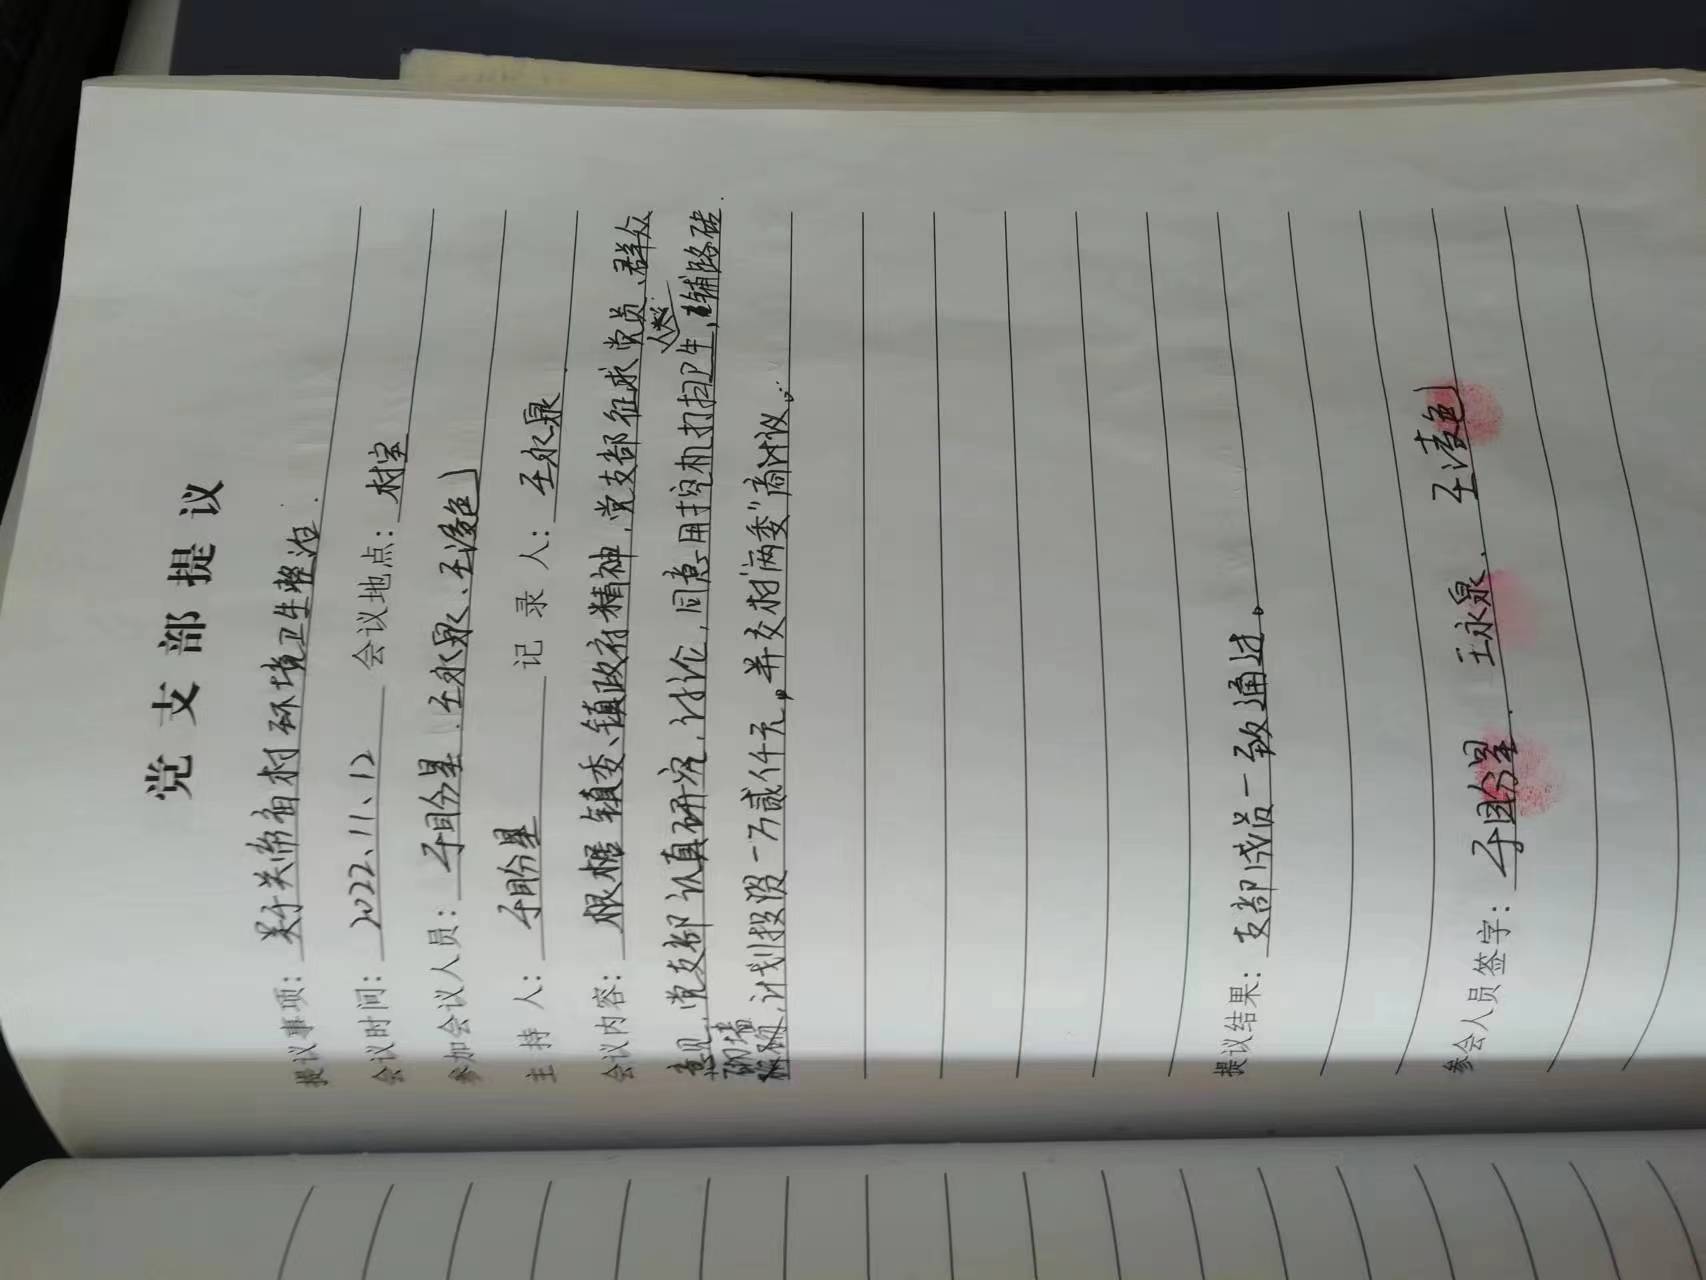 党支部提议
提议事项：关于关帝庙村环境卫生整治.
会议时间：2022、11、12 会议地点：村室
参加会议人员：于团分星、王永泉、王凌色
主持人：于团分星 记录人：王永泉
会议内容：根据镇委、镇政府精神，党支部征求党员、群众
意见，党支部认真研究，讨论，同意用挖机打扫卫生，铺路砖
砌墙，计划投资一万贰仟元，并交村"两委"商议。
提议结果：支部成员一致通过。
参会人员签字：于团分星、王永泉、王凌色